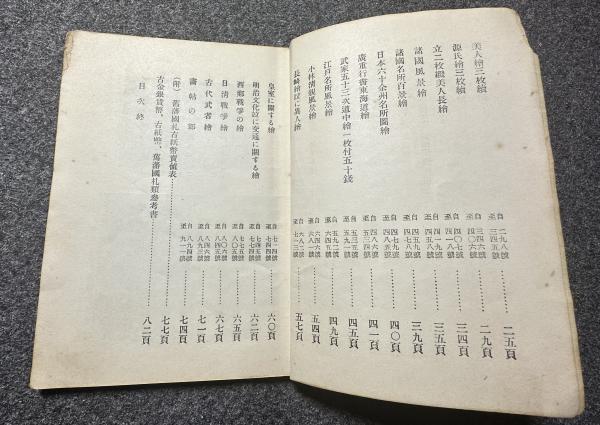 美人繪三枚續 自二九八號 至三四五號 二五頁
源氏繪三枚續 自三四六號 至四〇六號 二九頁
立二枚綴美人長繪 自四〇七號 至四一八號 三四頁
諸國風景繪 自四一九號 三五頁
諸國名所百景繪 三九頁
日本六十余州名所圖繪 自四七九號 四〇頁
廣重行書東海道繪 自四八六號 四一頁
武家五十三次道中繪一枚付五十錢 自五三五號 四五頁
江戸名所風景繪 至六四五號 四九頁
小林清親風景繪 自六四六號 至六八一號 五四頁
長崎繪並に異人繪 至七一三號 五七頁
皇室に關する繪 自七一四號 至七四四號 六〇頁
明治文化並に交通に關する繪 自七四五號 至七七四號 六二頁
西郷戰爭の繪 自七七五號 至八〇五號 六五頁
日清戰爭繪 自八〇六號 至八四五號 六七頁
古代武者繪 自八四六號 至八九三號 七一頁
畫帖の部 自八九四號 至九一一號 七四頁
(附)舊藩國札古紙幣賣値表 七七頁
古金銀貨幣、古紙幣、舊藩國札類參考書 八二頁
目次終